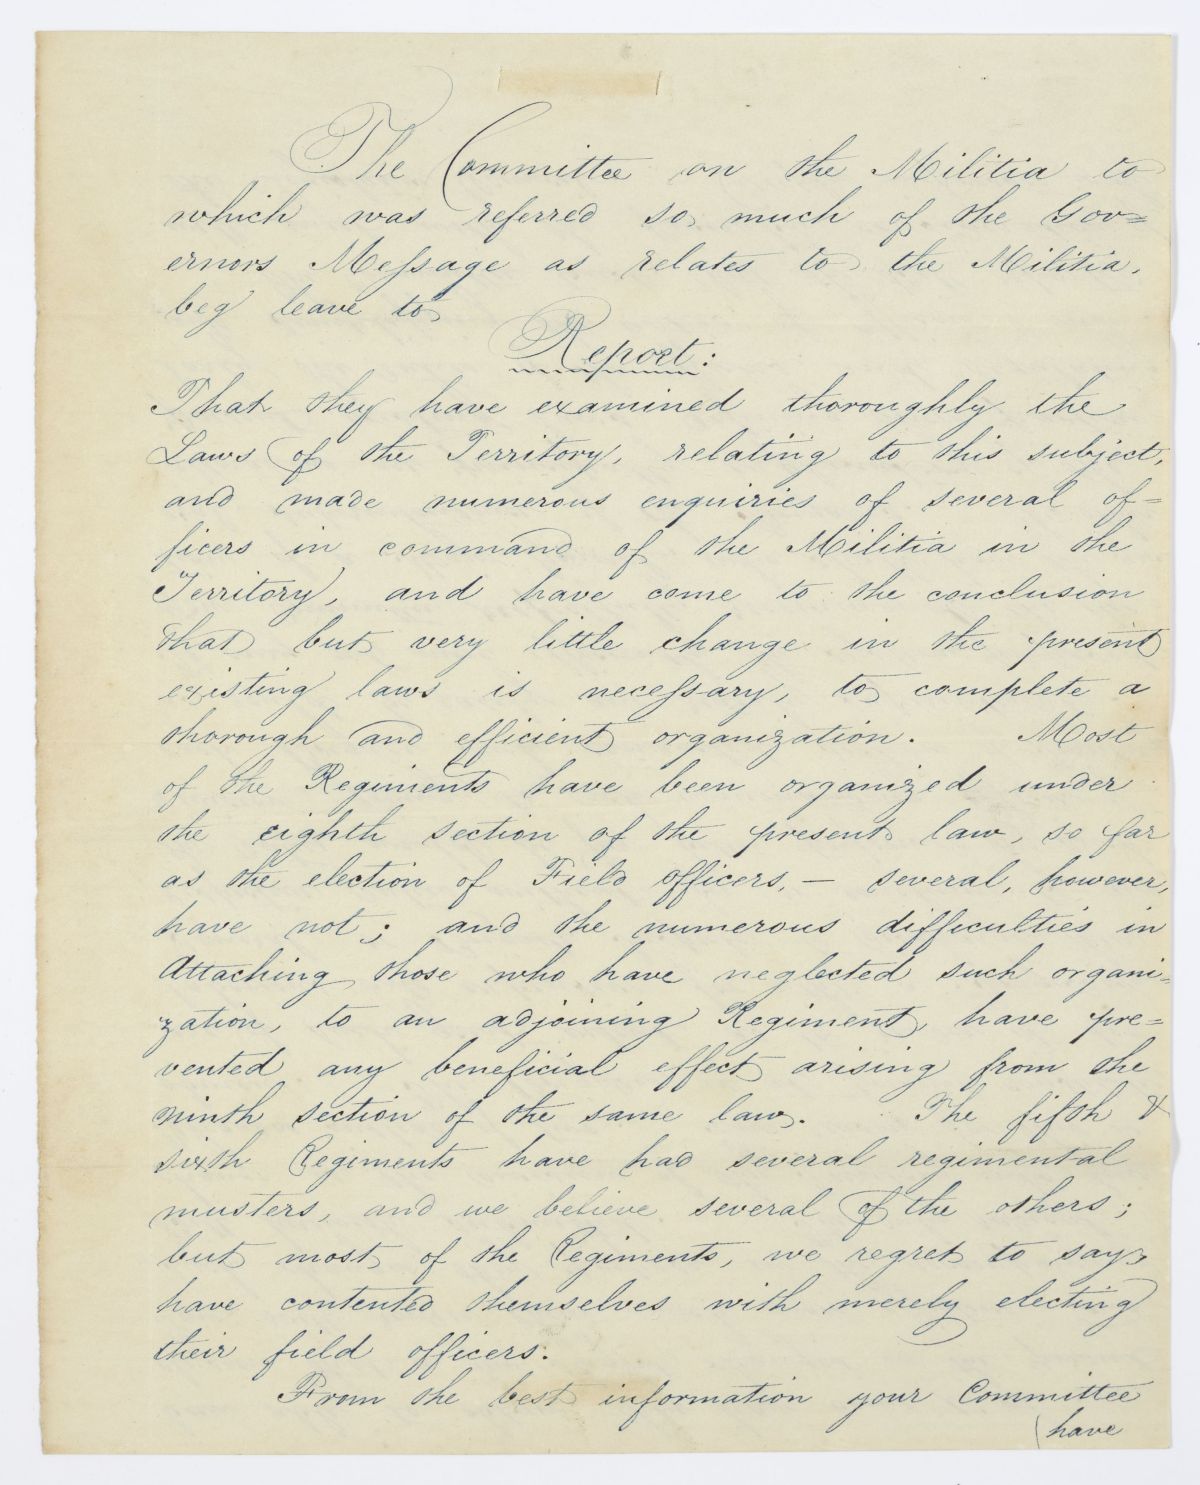 The Committee on the Militia to
which was referred so much of the Gov=
ernors Meſsage as relates to the Militia,
beg leave to
Report:
That they have examined thoroughly the
Laws of the Territory, relating to this subject,
and made numerous enquiries of several of=
ficers in command of the Militia in the
Territory, and have come to the conclusion
that but very little change in the present
existing laws is neceſsary, to complete a
thorough and efficient organization. Most
of the Regiments have been organized under
the eighth section of the present law, so far
as the election of Field officers, — several, however,
have not; and the numerous difficulties in
Attaching those who have neglected such organi=
zation, to an adjoining Regiment, have pre=
vented any beneficial effect arising from the
ninth section of the same law. The fifth &
sixth Regiments have had several regimental
musters, and we believe several of the others;
but most of the Regiments, we regret to say,
have contented themselves with merely electing
their field officers.
From the best information your Committee
have